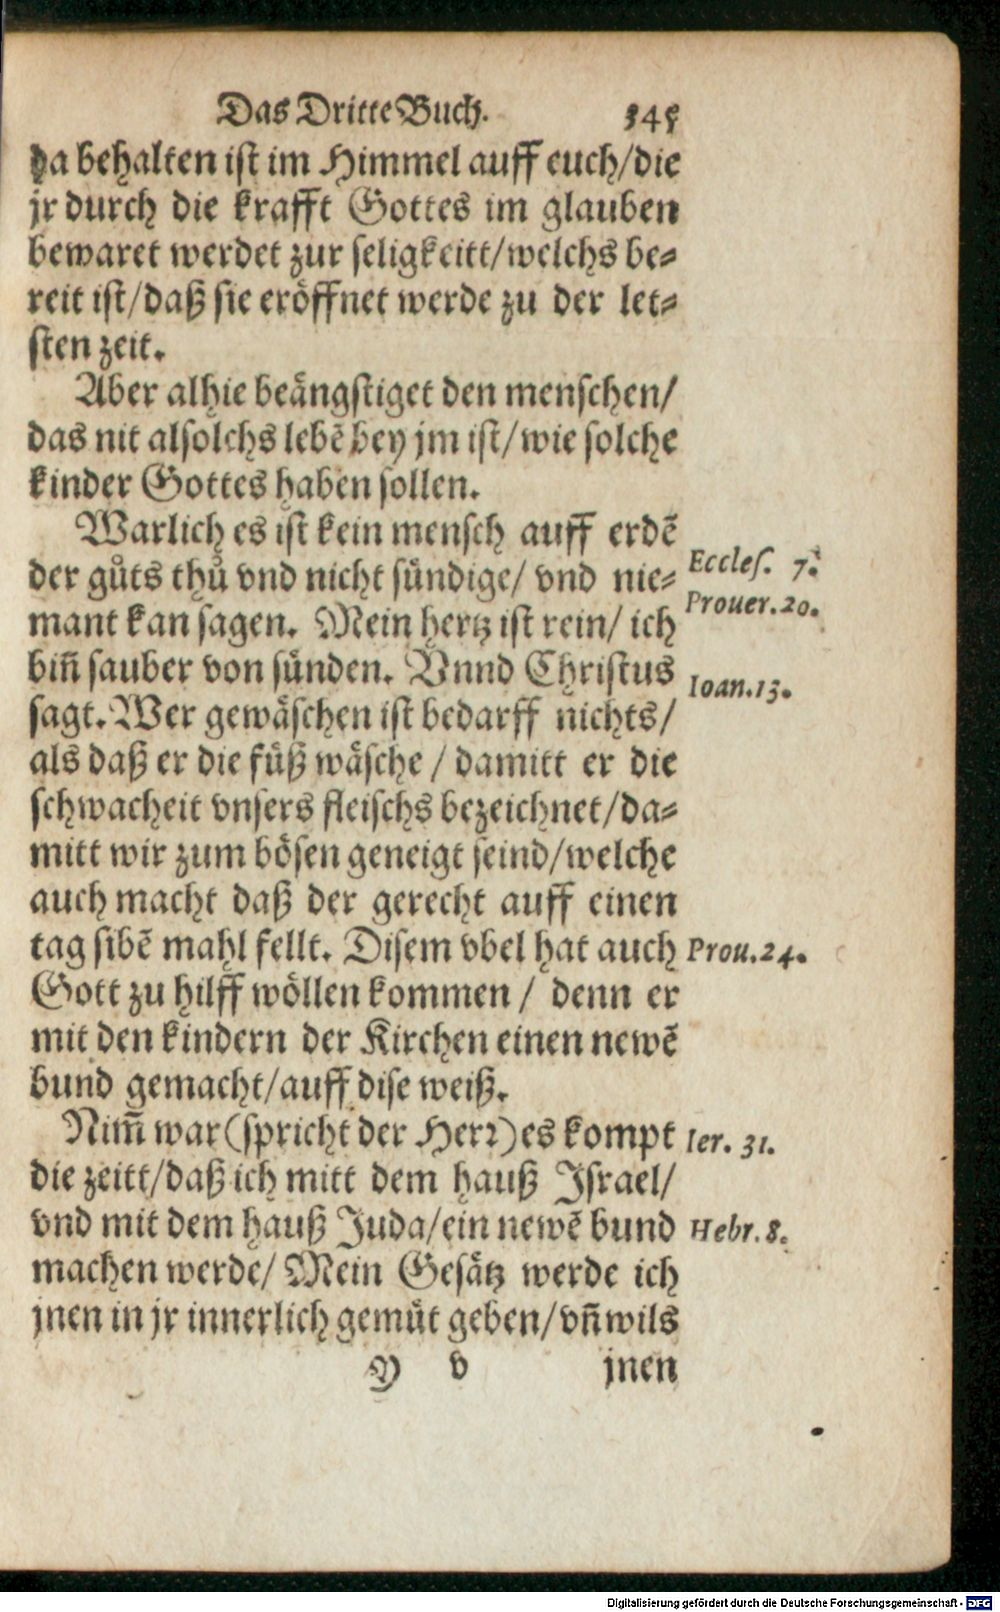 Das Dritte Buch. 345
da behalten ist im Himmel auff euch/die
jr durch die krafft Gottes im glauben
bewaret werdet zur seligkeitt/welchs be-
reit ist/daß sie eröffnet werde zu der let-
sten zeit.
Aber alhie beängstiget den menschen/
das nit alsolchs lebẽ bey jm ist/wie solche
kinder Gottes haben sollen.
Warlich es ist kein mensch auff erdẽ
der gůts thů vnd nicht sündige/ vnd nie-
Eccles. 7.
mant kan sagen. Mein hertz ist rein/ ich
Prouer.20.
biñ sauber von sünden. Vnnd Christus
Ioan.13.
sagt. Wer gewäschen ist bedarff nichts/
als daß er die füß wäsche / damitt er die
schwacheit vnsers fleischs bezeichnet/da-
mitt wir zum bösen geneigt seind/welche
auch macht daß der gerecht auff einen
tag sibẽ mahl fellt. Disem vbel hat auch
Prou.24.
Gott zu hilff wöllen kommen / denn er
mit den kindern der Kirchen einen newẽ
bund gemacht/auff dise weiß.
Nim̃ war (spricht der Herr) es kompt
Ier. 31.
die zeitt/daß ich mitt dem hauß Israel/
vnd mit dem hauß Juda/ein newẽ bund
Hebr. 8.
machen werde/ Mein Gesätz werde ich
jnen in jr innerlich gemüt geben/vñ wils
Y v jnen
Digitalisierung gefördert durch die Deutsche Forschungsgemeinschaft - DFG